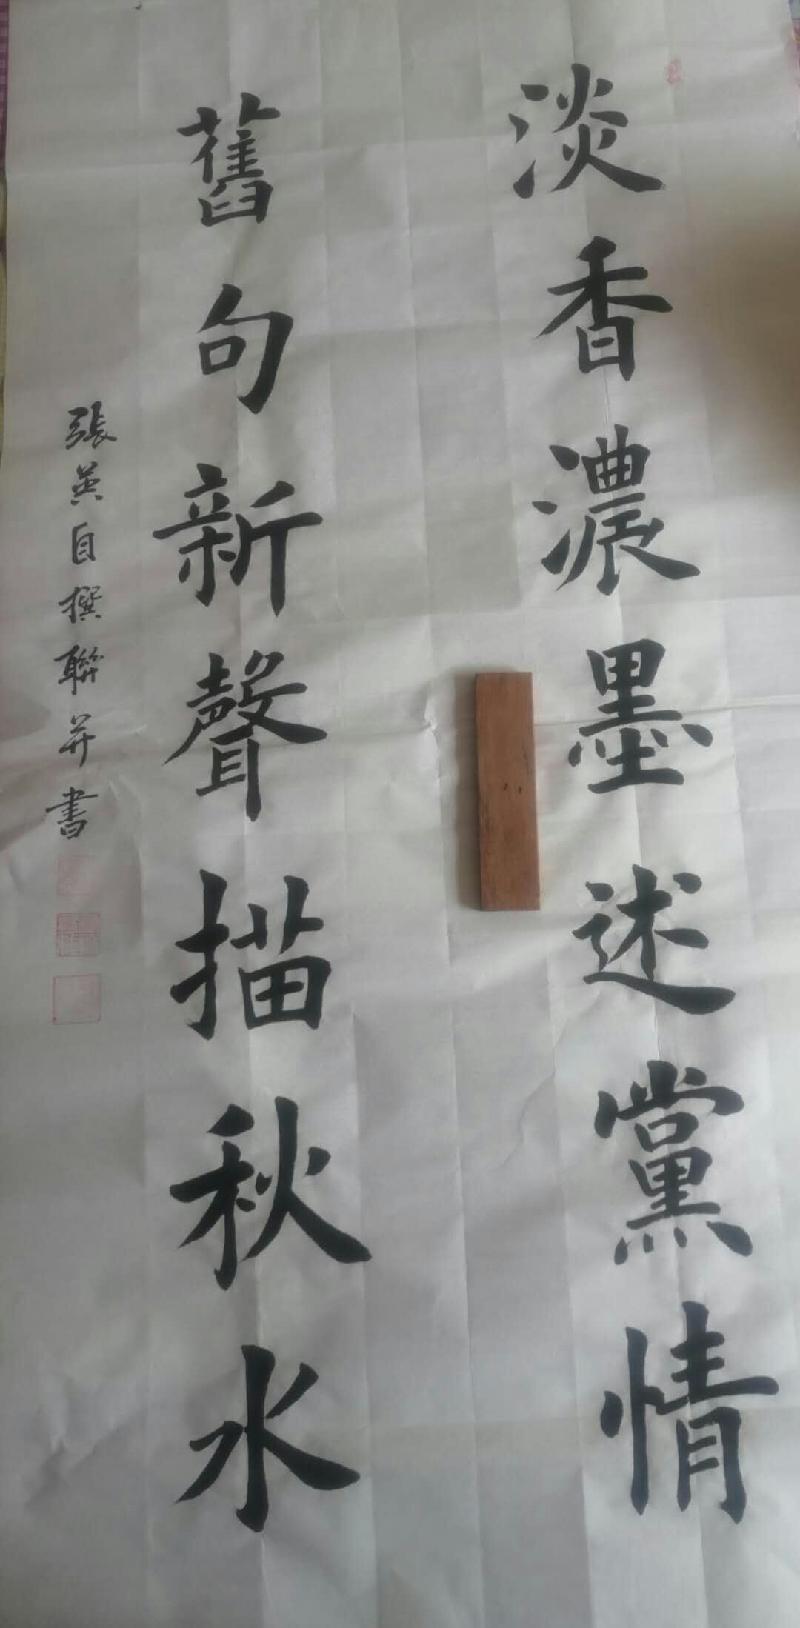 淡香濃墨述黨情
舊句新聲描秋水
張英自撰聯并書